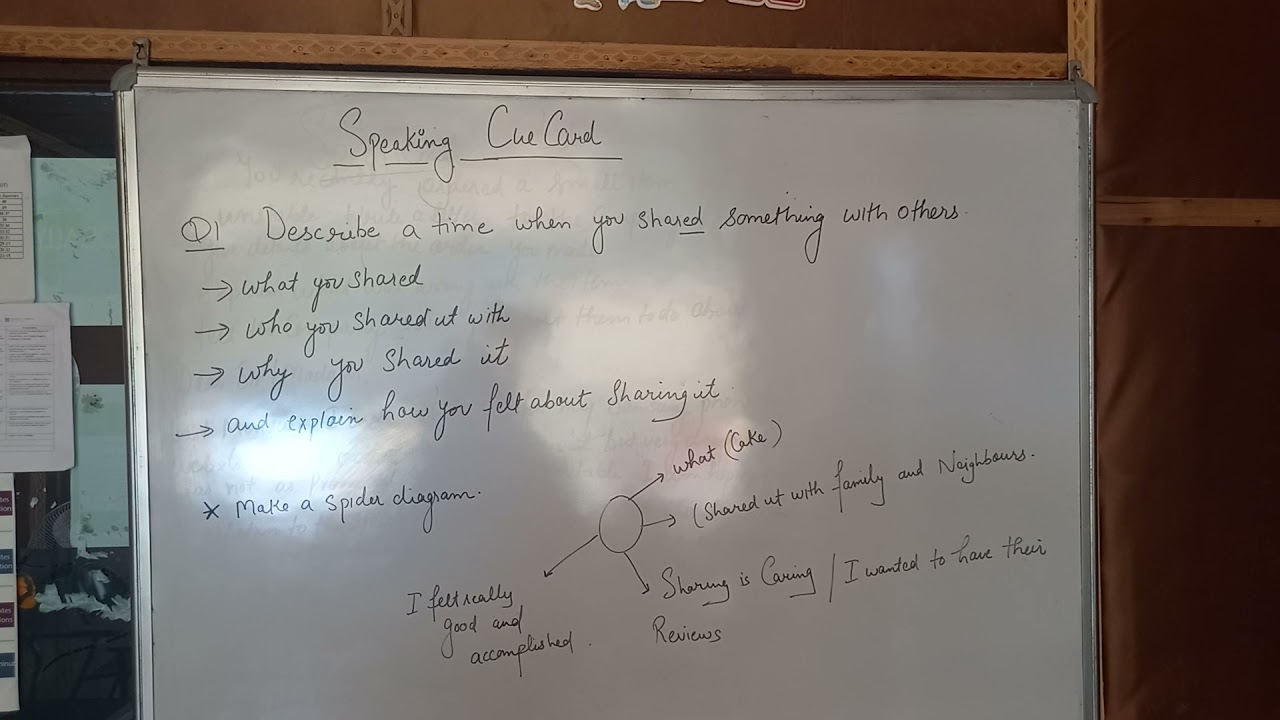 Speaking Cue Card
Q1 Describe a time when you shared something with others.
→ what you shared
→ who you shared it with
→ why you shared it
→ and explain how you felt about sharing it.
* Make a spider diagram.
what (Cake)
(Shared it with family and Neighbours.
Sharing is Caring / I wanted to have their
Reviews
I felt really
good and
accomplished.